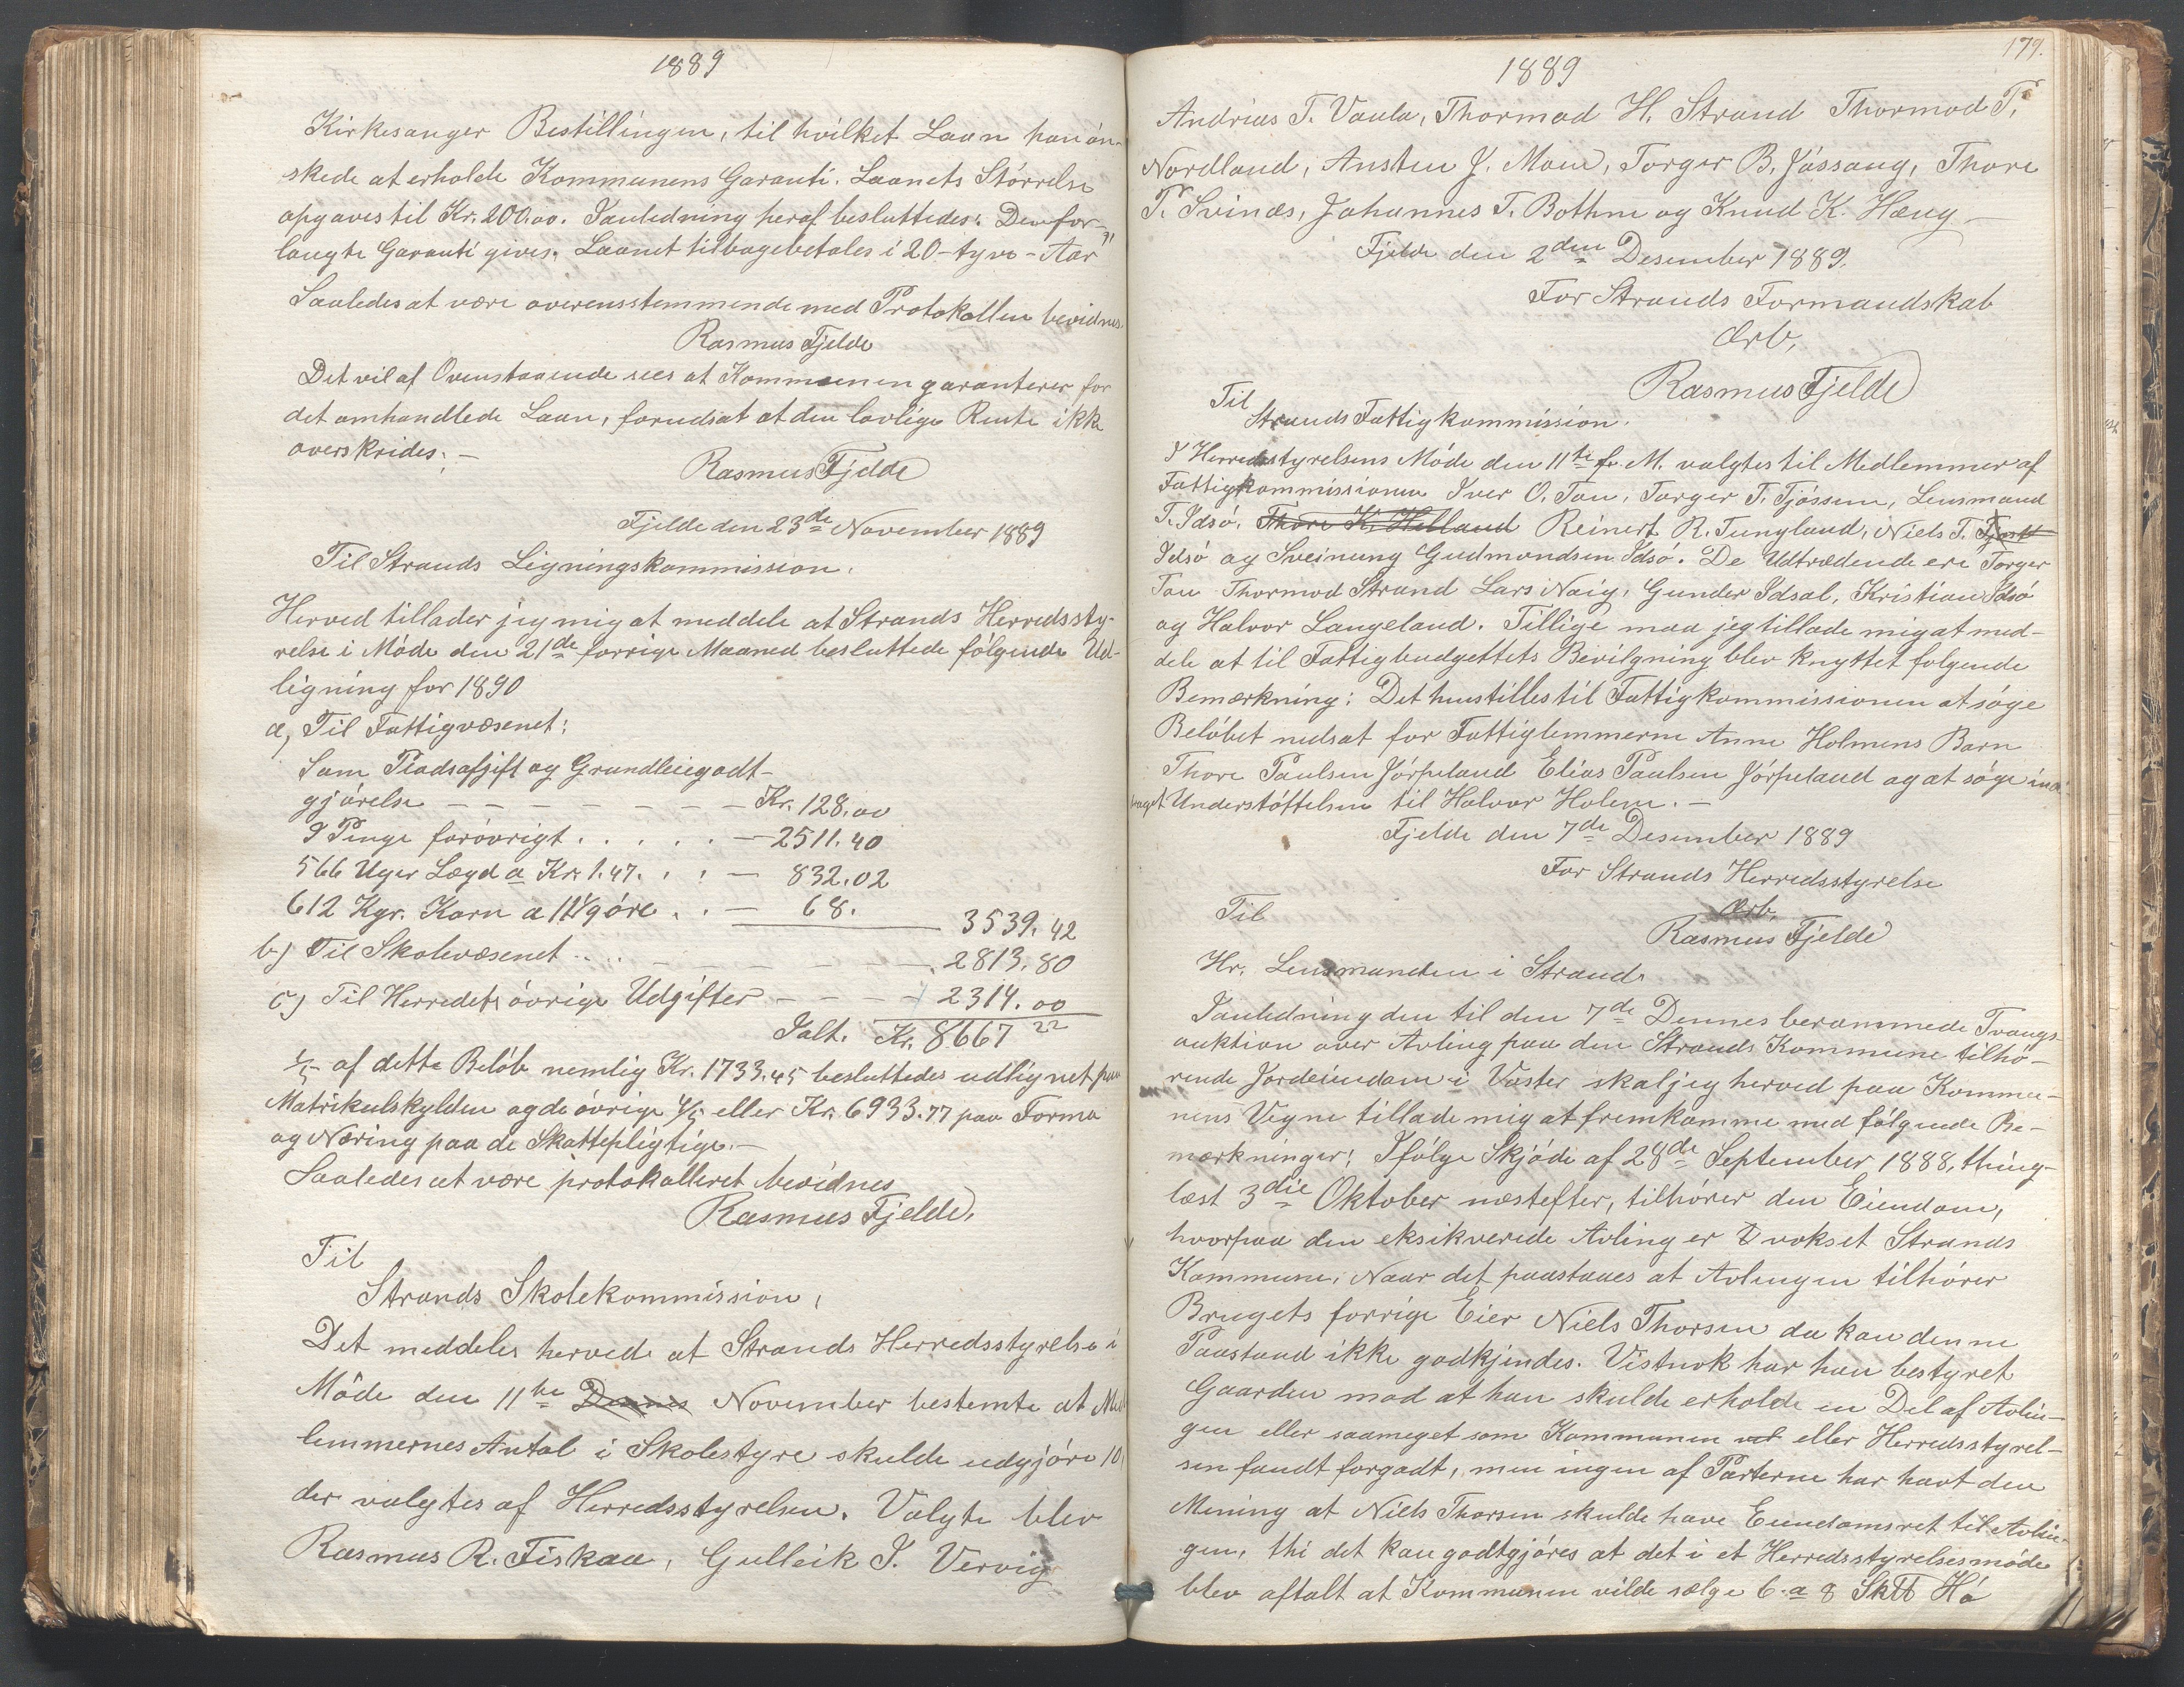 1889
Kirkesanger Bestillingen, til hvilket Laan han ön-
skede at erholde Kommunens Garanti. Laanets Störrelse
opgaves til Kr. 200.00. Ianledning heraf besluttedes: Den for-
langte Garanti gives. Laanet tilbagebetales i 20-tyve-Aar
Saaledes at være overensstemmende med Protokollen bevidnes.
Rasmus Fjelde
Det vil af Ovenstaaende sees at Kommunen garanterer for
det omhandlede Laan, forudsat at den lovlige Rente ikke
overskrides. —
Rasmus Fjelde
Fjelde den 23de November 1889
Til Strands Ligningskommission.
Herved tillader jeg mig at meddele at Strands Herredssty-
relse i Möde den 21de forrige Maaned besluttede fölgende Ud-
ligning for 1890
a, Til Fattigvæsenet:
Som Pladsafgift og Grundleiegodt-
gjörelse — — — — — — — Kr. 128.00
I Penge forövrigt . . . . . — 2511.40
566 Uger Lægd a Kr. 1.47. . : — 832.02
612 Kgr. Korn a 11 1/9 öre . . — 68. 3539.42
b) Til Skolevæsenet . . . . — — — — — 2813.80
c) Til Herredets övrige Udgifter — — — — 2314.00
Ialt. Kr. 8667 22
1/5 af dette Belöb nemlig Kr. 1733.45 besluttedes udlignet paa
Matrikulskylden og de övrige 4/5 eller Kr. 6933.77 paa Formu
og Næring paa de Skattepligtige. —
Saaledes at være protokolleret bevidnes
Rasmus Fjelde.
Til
Strands Skolekommission,
Det meddeles herved at Strands Herredsstyrelse i
Möde den 11te Dennes November bestemte at Med
lemmernes Antal i Skolestyre skulde udgjöre 10,
der valgtes af Herredsstyrelsen. Valgte blev
Rasmus R. Fiskaa, Gulleik I. Vervig
179.
1889
Andrias T. Vaula, Thormod H. Strand Thormod T.
Nordland, Ansten J. Moen, Torger B. Jössang, Thore
T. Svines, Johannes T. Bothne og Knud K. Hæug —
Fjelde den 2den Desember 1889.
For Strands Formandskab
Ærb,
Rasmus Fjelde
Til
Strands Fattigkommission.
I Herredsstyrelsens Möde den 11te f. M. valgtes til Medlemmer af
Fattigkommissionen Iver O. Tou, Torger T. Tjössem, Lensmand
T. Idsö, Thore K. Helland Reinert R. Tungland, Niels T.
Idsö og Sveinung Gudmundsen Idsö. De Udtrædende ere Torger
Tou Thormod Strand Lars Naig, Gunder Idsal, Kristian Idsö
og Halvor Langeland. Tillige maa jeg tillade mig at med-
dele at til Fattigbudgettets Bevilgning blev knyttet folgende
Bemærkning: Det henstilles til Fattigkommissionen at söge
Belöbet nedsat for Fattiglemmerne Anne Holmens Barn
Thore Paulsen Jörpeland Elias Paulsen Jörpeland og at söge ind
draget Understöttelsen til Halvor Holem. —
Fjelde den 7de Desember 1889
For Strands Herredsstyrelse
Ærb,
Rasmus Fjelde
Til
Hr. Lensmanden i Strand.
Ianledning den til den 7de Dennes berammede Tvangs-
auktion over Avling paa den Strands Kommune tilhö-
rende Jordeiendom i Vaster skal jeg herved paa Kommu-
nens Vegne tillade mig at fremkomme med fölgende Be-
mærkninger: Ifölge Skjöde af 28de September 1888, thing-
læst 3die Oktober næstefter, tilhörer den Eiendom,
hvorpaa den eksikverede Avling er vokset Strands
Kommune. Naar det paastaaes at Avlingen tilhörer
Brugets forrige Eier Niels Thorsen da kan denne
Paastand ikke godkjendes. Vistnok har han bestyret
Gaarden mod at han skulde erholde en Del af Avlin-
gen eller saameget som Kommunen ved eller Herredsstyrel-
sen fandt forgodt, men ingen af Parterne har havt den
Mening at Niels Thorsen skulde have Eiendomsret til Avlin-
gen, thi det kan godtgjöres at det i et Herredsstyrelsesmöde
blev aftalt at Kommunen vilde sælge 6 a 8 Sk℔ Hö